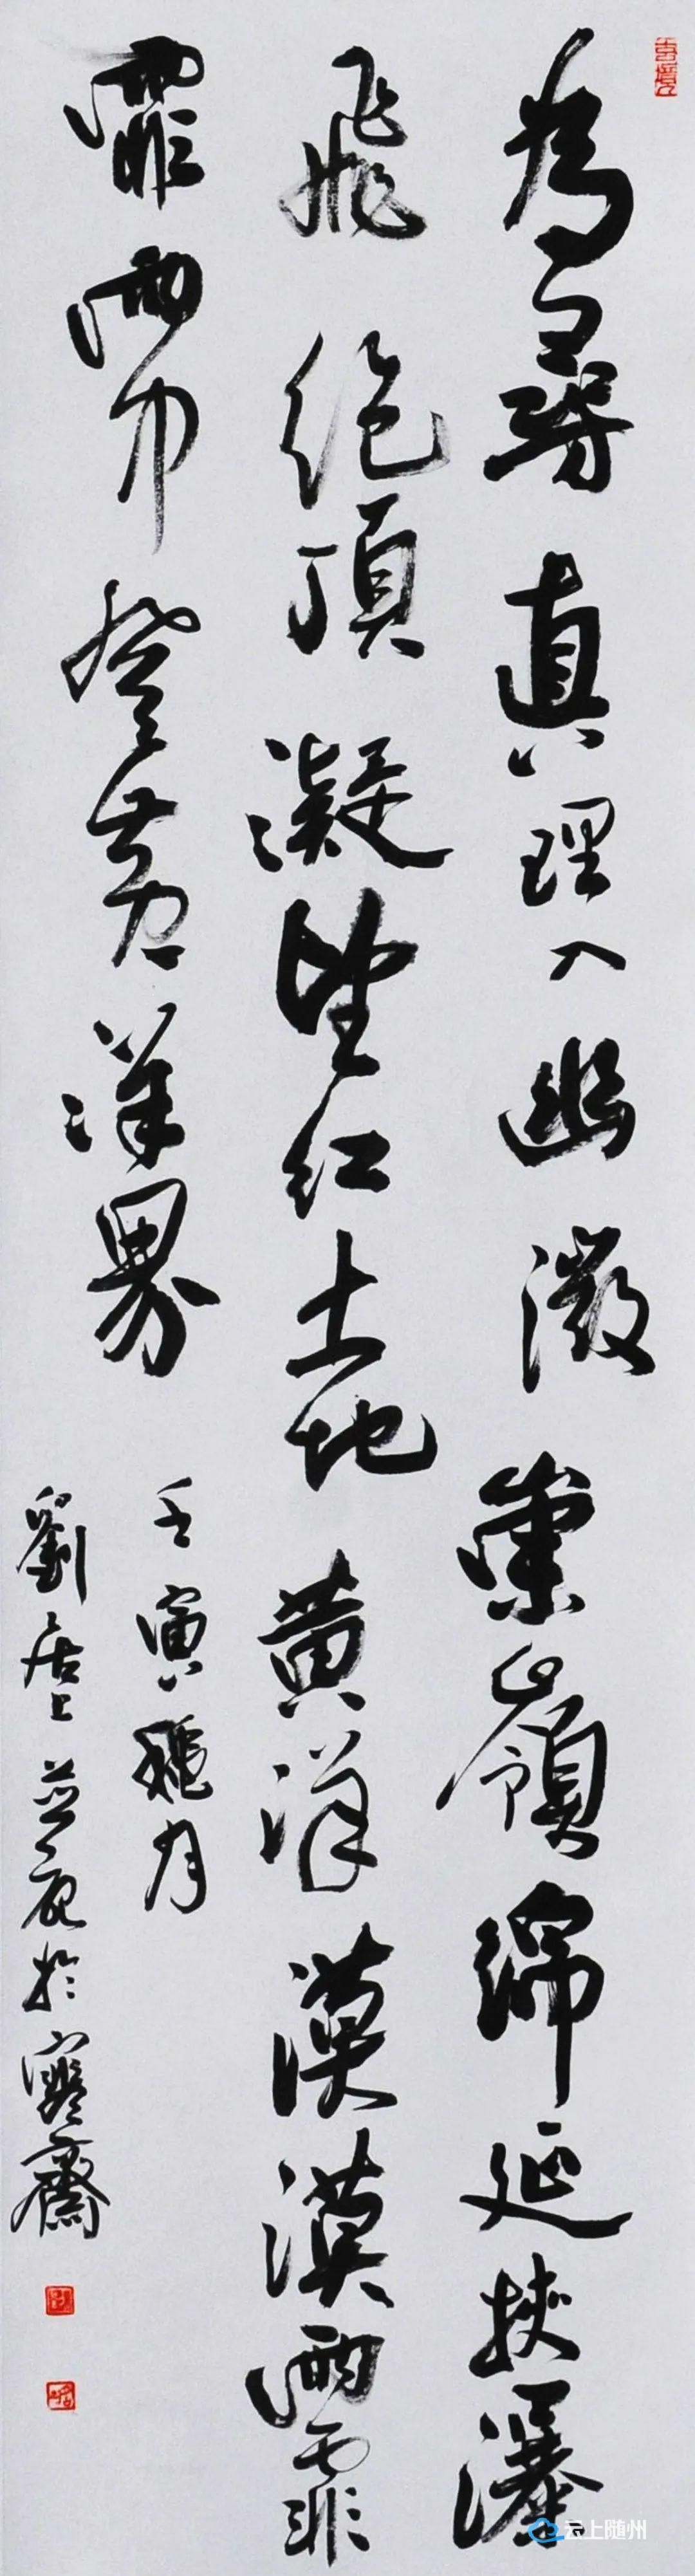 為尋真理入幽微叢嶺綿延挾瀑
飛絕頂凝望紅土地黃洋漠漠雨霏
霏雨中登黃洋界
壬寅 月
劉居上並 於寒齋
云上随州